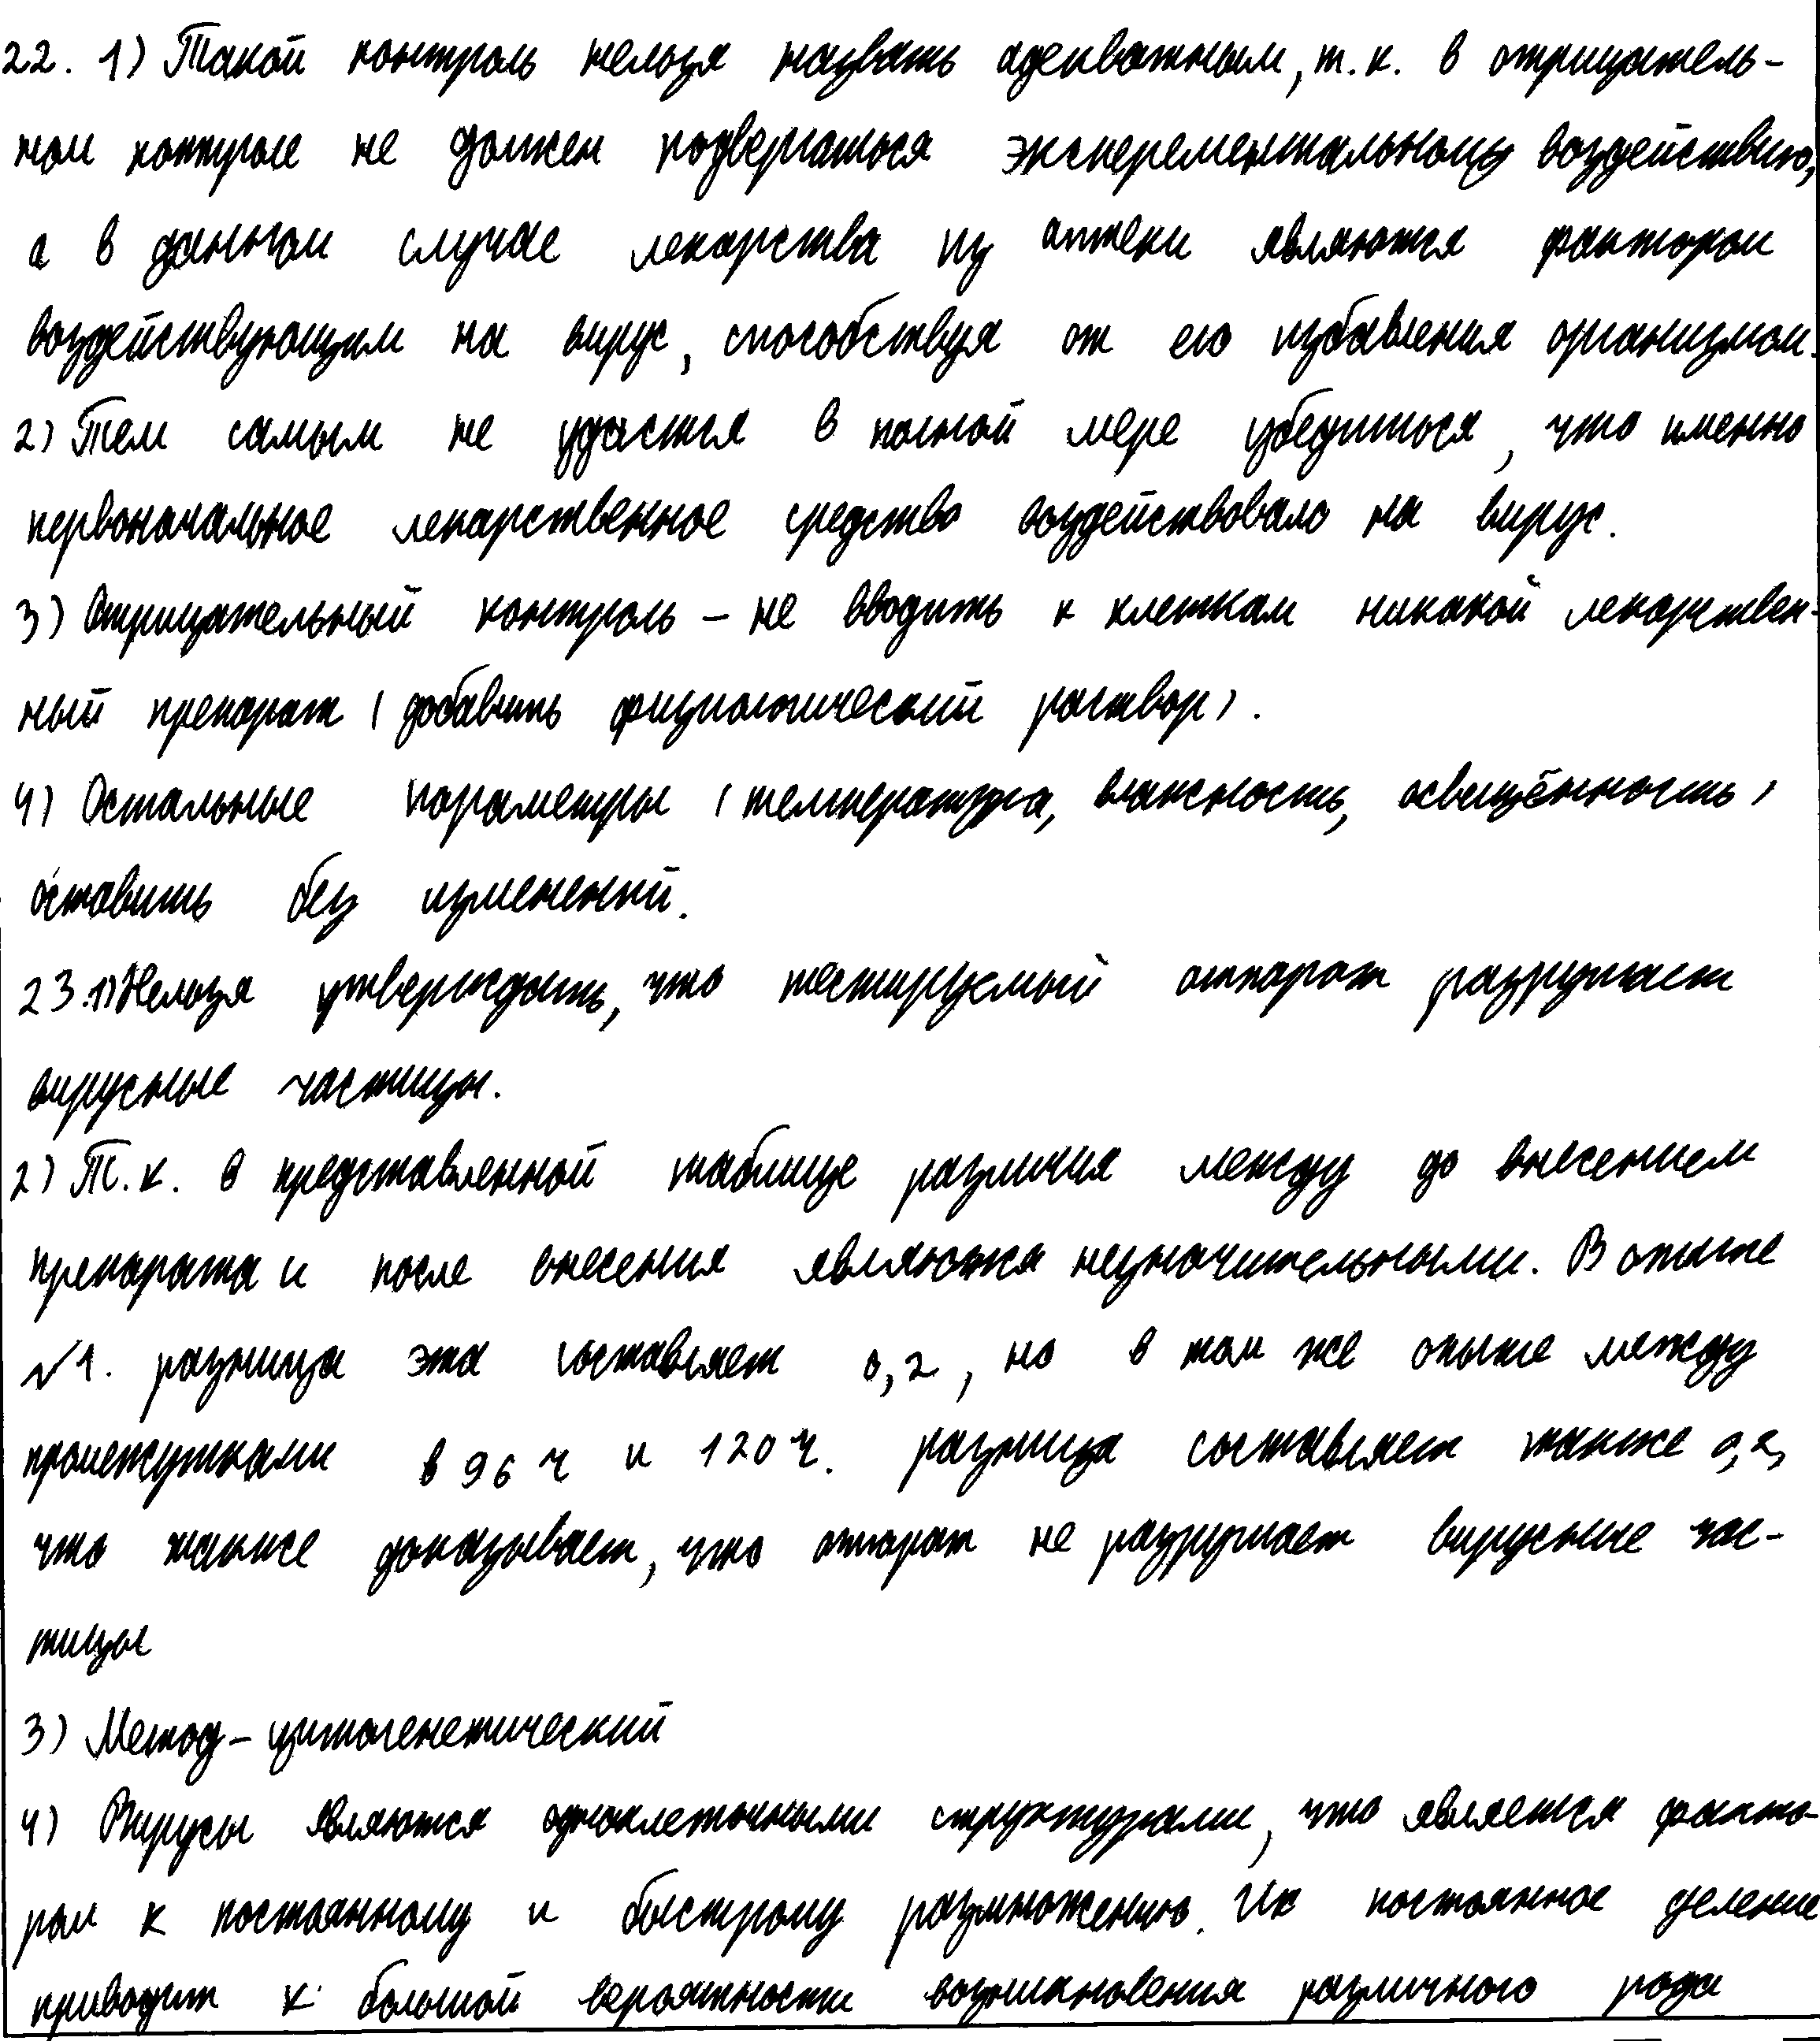 22. 1) Такой контроль нельзя назвать адекватным, т. к. в отрицатель-
ном контроле не должен подвергаться эксперементальному воздействию,
а в данном случае лекарства из аптеки являются фактором
воздействующим на вирус, способствуя от его избавления организмом.
2) Тем самым не удастся в полной мере убедиться, что именно
первоначальное лекарственное средство воздействовало на вирус.
3) Отрицательный контроль – не вводить к клеткам никакой лекарствен-
ный препарат (добавить физиологический раствор).
4) Остальные параметры (температура, влажность, освещённость)
оставить без изменений.
23. 1) Нельзя утверждать, что тестируемый аппарат разрушает
вирусные частицы.
2) Т. к. в представленной таблице различия между до внесением
препарата и после внесения являются незначительными. В опыте
№1. разница эта составляет 0,2, но в том же опыте между
промежутками в 96 ч и 120 ч. разница составляет также 0,2,
что также доказывает, что аппарат не разрушает вирусные час-
тицы
3) Метод – цитогенетический
4) Вирусы являются одноклеточными структурами, что является факто-
ром к постоянному и быстрому размножению. Их постоянное деление
приводит к большой вероятности возникновения различного рода